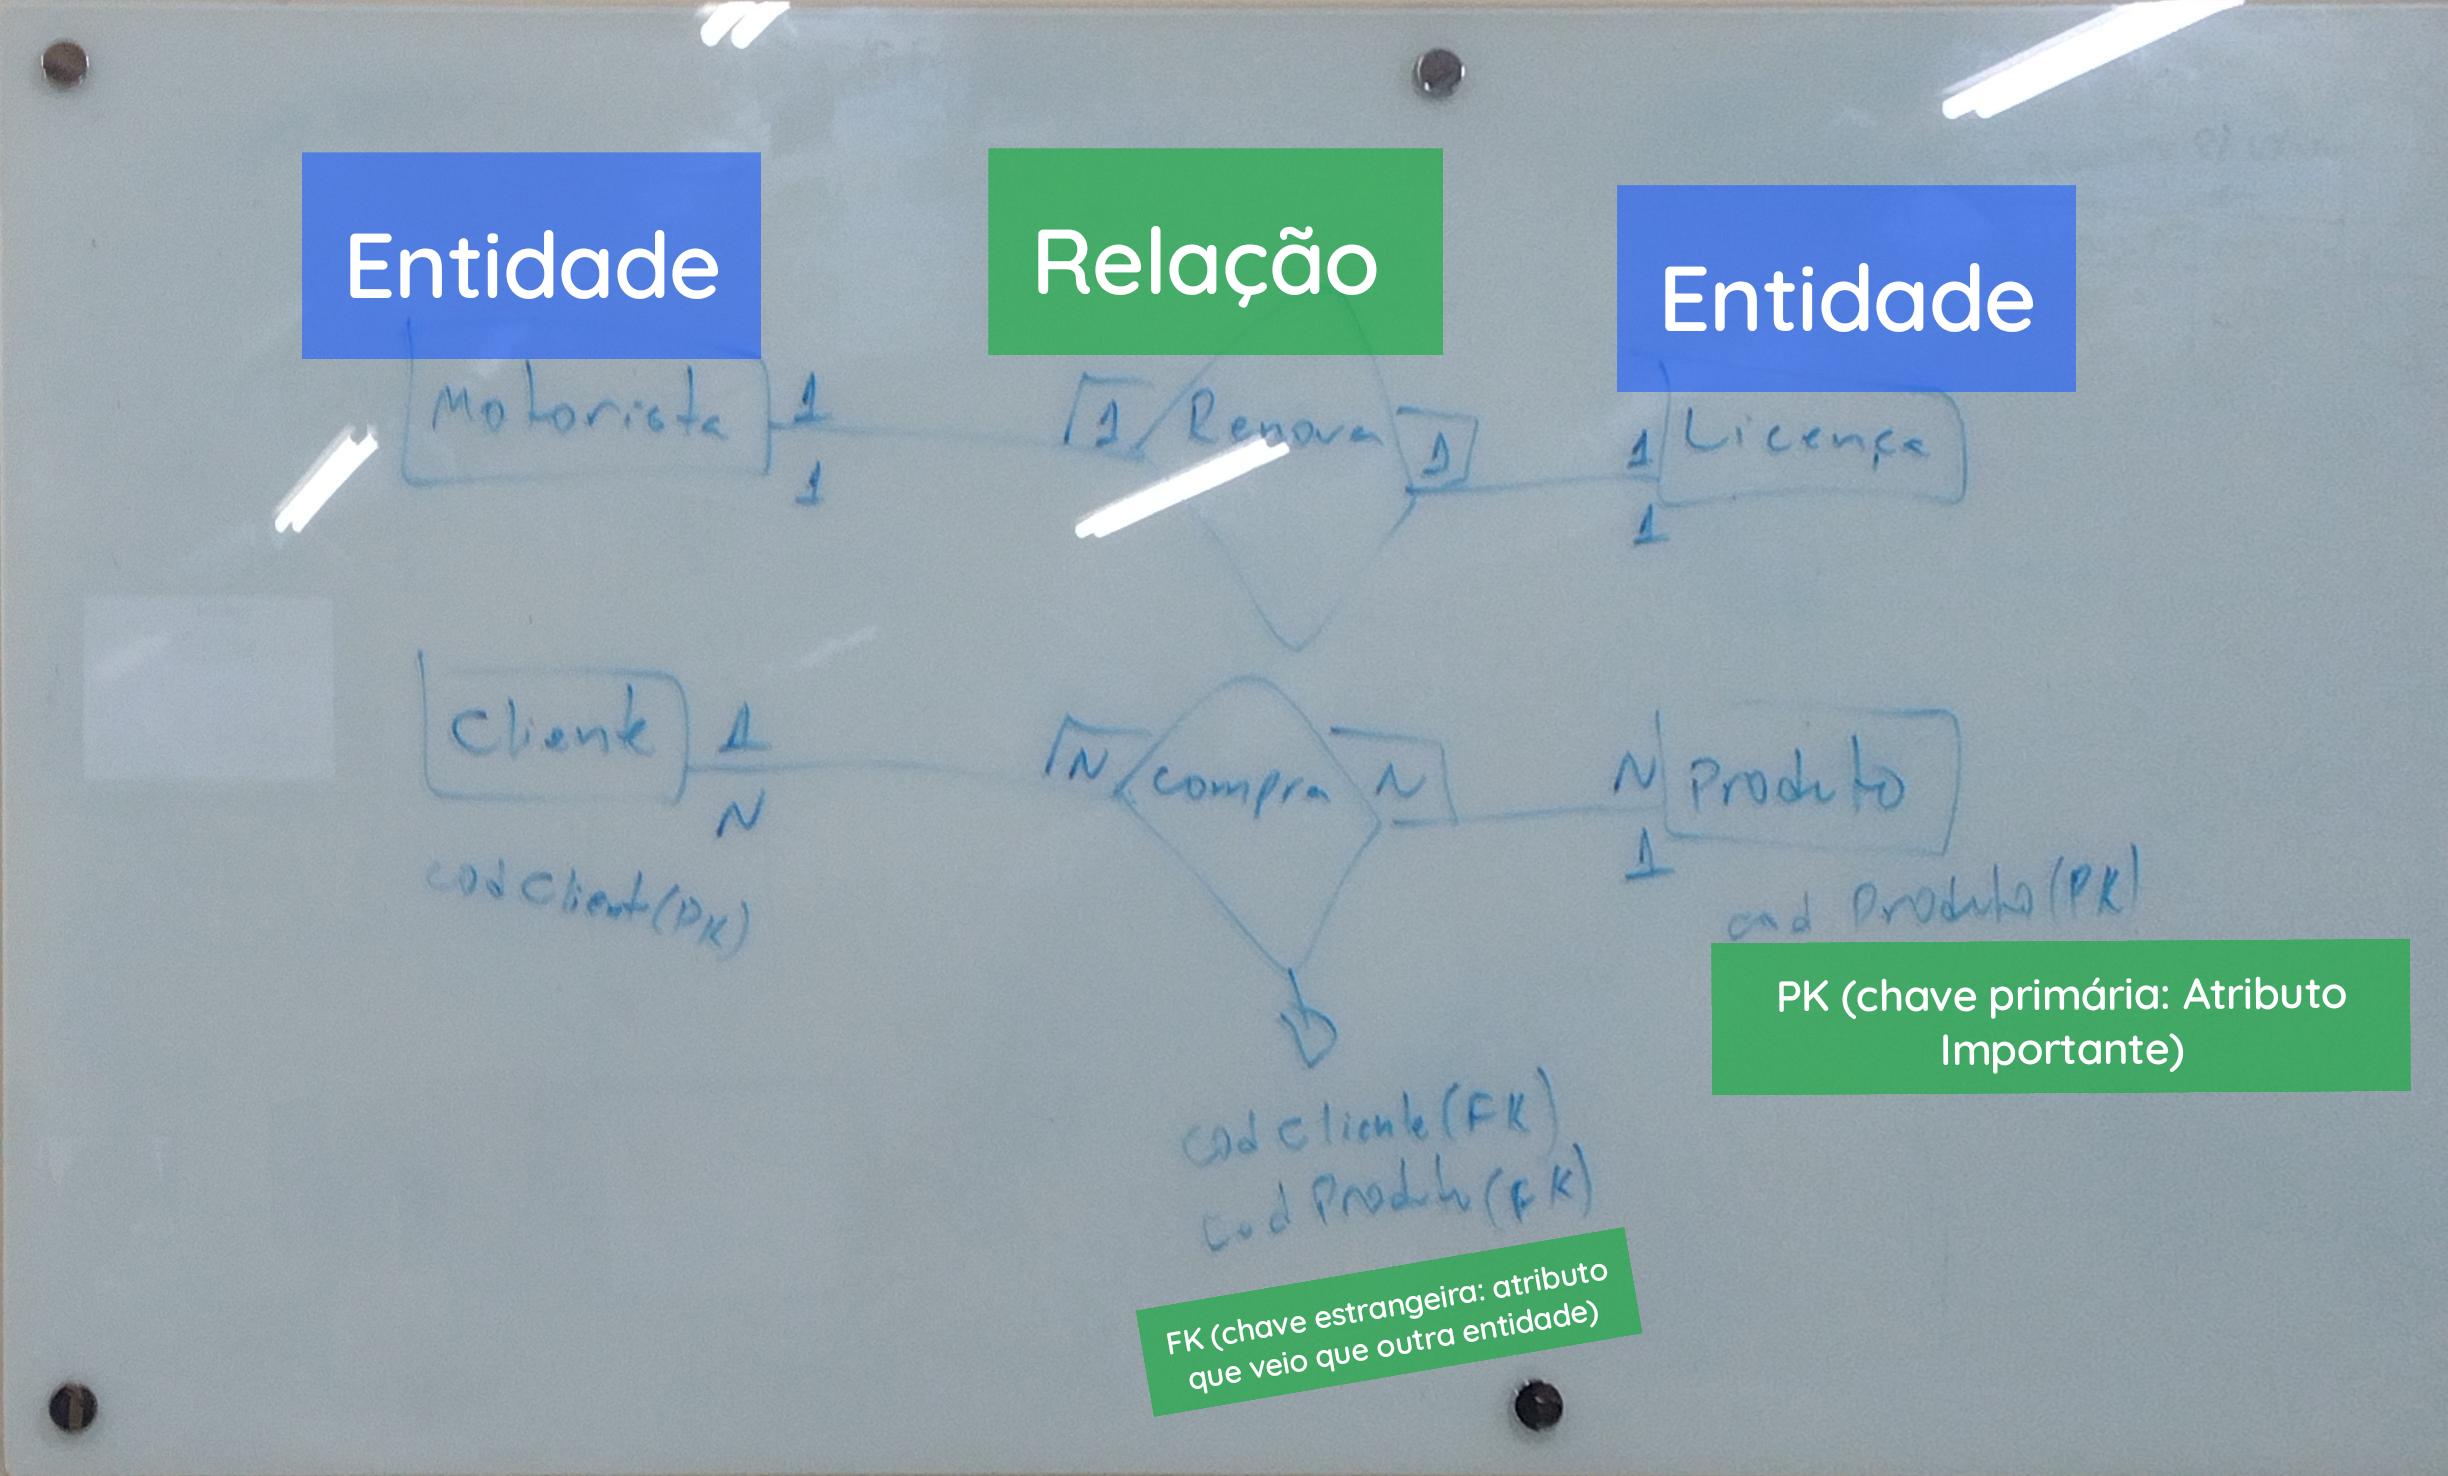 Entidade
Relação
Entidade
Motorista
1
1
1
Renova
1
1
1
Licença
Cliente
1
N
N
compra
N
N
1
Produto
cod Client(PK)
cod Produto(PK)
PK (chave primária: Atributo
Importante)
cod Cliente(FK)
cod Produto(FK)
FK (chave estrangeira: atributo
que veio que outra entidade)